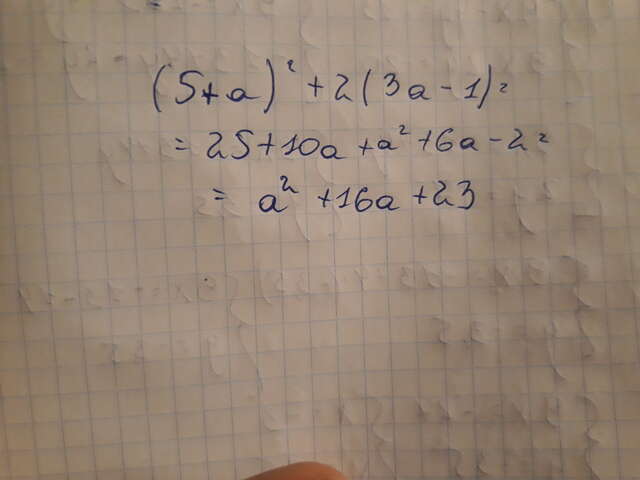 (5+a)² + 2(3a-1) =
= 25+10a+a²+6a-2 =
= a²+16a+23